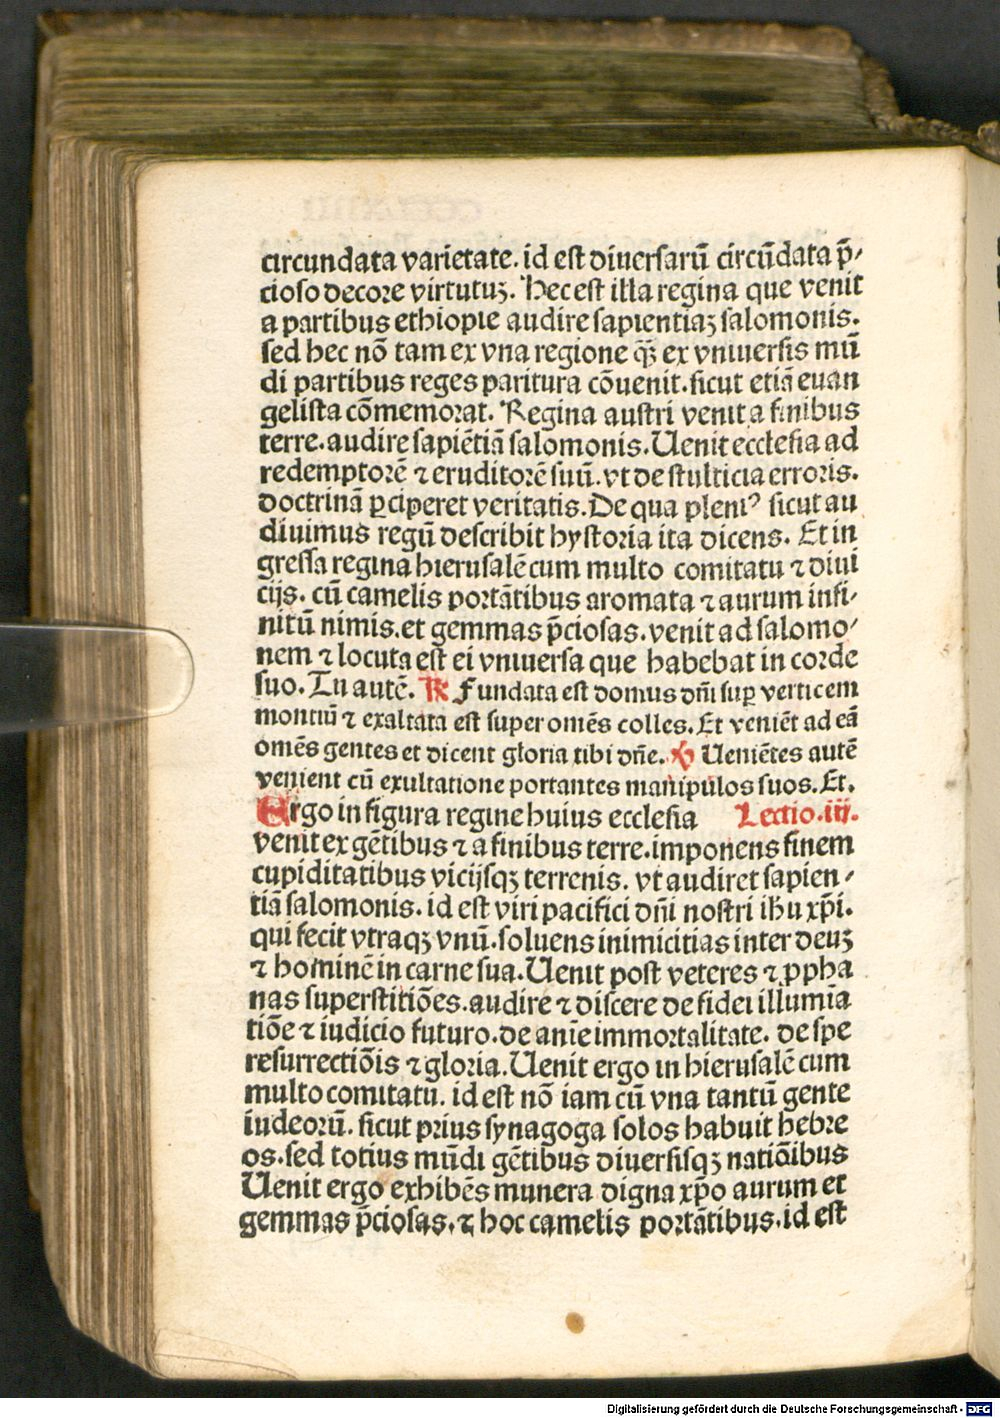 circundata varietate. id est diuersarū circūdata p̄-
cioso decore virtutuʒ. Hec est illa regina que venit
a partibus ethiopie audire sapientiaʒ salomonis.
sed hec nō tam ex vna regione qʒ̄ ex vniuersis mū
di partibus reges paritura cōuenit. sicut etiā euan
gelista cōmemorat. Regina austri venit a finibus
terre. audire sapiētiā salomonis. Uenit ecclesia ad
redemptorē ⁊ eruditorē suū. vt de stulticia erroris.
doctrinā ꝑciperet veritatis. De qua pleniꝰ sicut au
diuimus regū describit hystoria ita dicens. Et in
gressa regina hierusalē cum multo comitatu ⁊ diui
cijs. cū camelis portātibus aromata ⁊ aurum infi-
nitū nimis. et gemmas p̄ciosas. venit ad salomo-
nem ⁊ locuta est ei vniuersa que habebat in corde
suo. Tu autē. ℟ Fundata est domus dn̄i suꝑ verticem
montiū ⁊ exaltata est super omēs colles. Et veniēt ad eā
omēs gentes et dicent gloria tibi dn̄e. ℣ Ueniētes autē
venient cū exultatione portantes manipulos suos. Et.
Ergo in figura regine huius ecclesia Lectio. iij.
venit ex gētibus ⁊ a finibus terre. imponens finem
cupiditatibus vicijsqʒ terrenis. vt audiret sapien-
tiā salomonis. id est viri pacifici dn̄i nostri ihu xp̄i.
qui fecit vtraqʒ vnū. soluens inimicitias inter deuʒ
⁊ hominē in carne sua. Uenit post veteres ⁊ ꝓpha
nas superstitiōes. audire ⁊ discere de fidei illumīa
tiōe ⁊ iudicio futuro. de anīe immortalitate. de spe
resurrectiōis ⁊ gloria. Uenit ergo in hierusalē cum
multo comitatu. id est nō iam cū vna tantū gente
iudeorū. sicut prius synagoga solos habuit hebre
os. sed totius mūdi gētibus diuersisqʒ natiōibus
Uenit ergo exhibēs munera digna xp̄o aurum et
gemmas p̄ciosas. ⁊ hoc camelis portātibus. id est
Digitalisierung gefördert durch die Deutsche Forschungsgemeinschaft - DFG